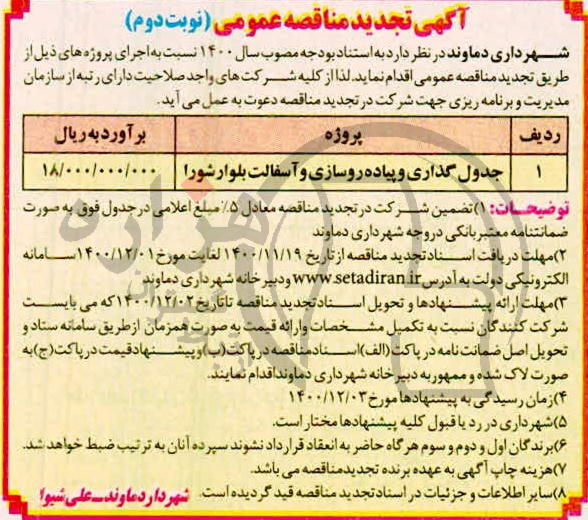 آگهی تجدید مناقصه عمومی (نوبت دوم)
شهرداری دماوند در نظر دارد به استناد بودجه مصوب سال ۱۴۰۰ نسبت به اجرای پروژه های ذیل از
طریق تجدید مناقصه عمومی اقدام نماید. لذا از کلیه شرکت های واجد صلاحیت دارای رتبه از سازمان
مدیریت و برنامه ریزی جهت شرکت در تجدید مناقصه دعوت به عمل می آید.
ردیف پروژه برآورد به ریال
۱ جدول گذاری و پیاده رو سازی و آسفالت بلوار شورا ۱۸/۰۰۰/۰۰۰/۰۰۰
توضیحات: ۱) تضمین شرکت در تجدید مناقصه معادل ۵٪ مبلغ اعلامی در جدول فوق به صورت
ضمانتنامه معتبر بانکی در وجه شهرداری دماوند
۲) مهلت دریافت اسناد تجدید مناقصه از تاریخ ۱۴۰۰/۱۱/۱۹ لغایت مورخ ۱۴۰۰/۱۲/۰۱ سامانه
الکترونیکی دولت به آدرس www.setadiran.ir و دبیرخانه شهرداری دماوند
۳) مهلت ارائه پیشنهادها و تحویل اسناد تجدید مناقصه تا تاریخ ۱۴۰۰/۱۲/۰۲ که می بایست
شرکت کنندگان نسبت به تکمیل مشخصات و ارائه قیمت به صورت همزمان از طریق سامانه ستاد و
تحویل اصل ضمانت نامه در پاکت (الف) اسناد مناقصه در پاکت (ب) و پیشنهاد قیمت در پاکت (ج) به
صورت لاک شده و ممهور به دبیرخانه شهرداری دماوند اقدام نمایند.
۴) زمان رسیدگی به پیشنهادها مورخ ۱۴۰۰/۱۲/۰۳
۵) شهرداری در رد یا قبول کلیه پیشنهادها مختار است.
۶) برندگان اول و دوم و سوم هرگاه حاضر به انعقاد قرارداد نشوند سپرده آنان به ترتیب ضبط خواهد شد.
۷) هزینه چاپ آگهی به عهده برنده تجدید مناقصه می باشد.
۸) سایر اطلاعات و جزئیات در اسناد تجدید مناقصه قید گردیده است. شهردار دماوند ـ علی شیوا
هزاره